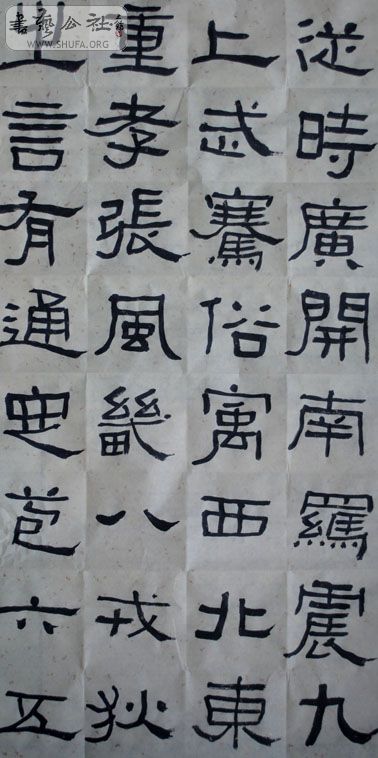 書藝公社
WWW.SHUFA.ORG
之重上從
言孝武時
有張騫廣
通風俗開
定畿寓南
苞八西羈
六戎北震
五狄東九